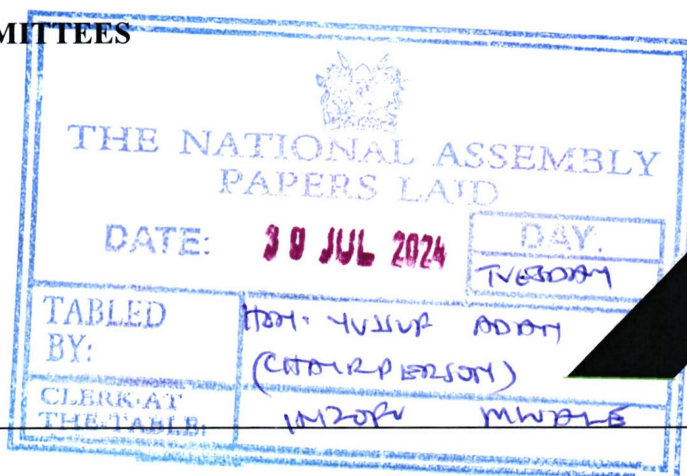 MITTEES
THE NATIONAL ASSEMBLY
PAPERS LAID
DATE: 30 JUL 2024 DAY:
TUESDAY
TABLED BY: HON. YUSSUF ADAN
(CHAIRPERSON)
CLERK-AT THE-TABLE: INZOFU MWALE